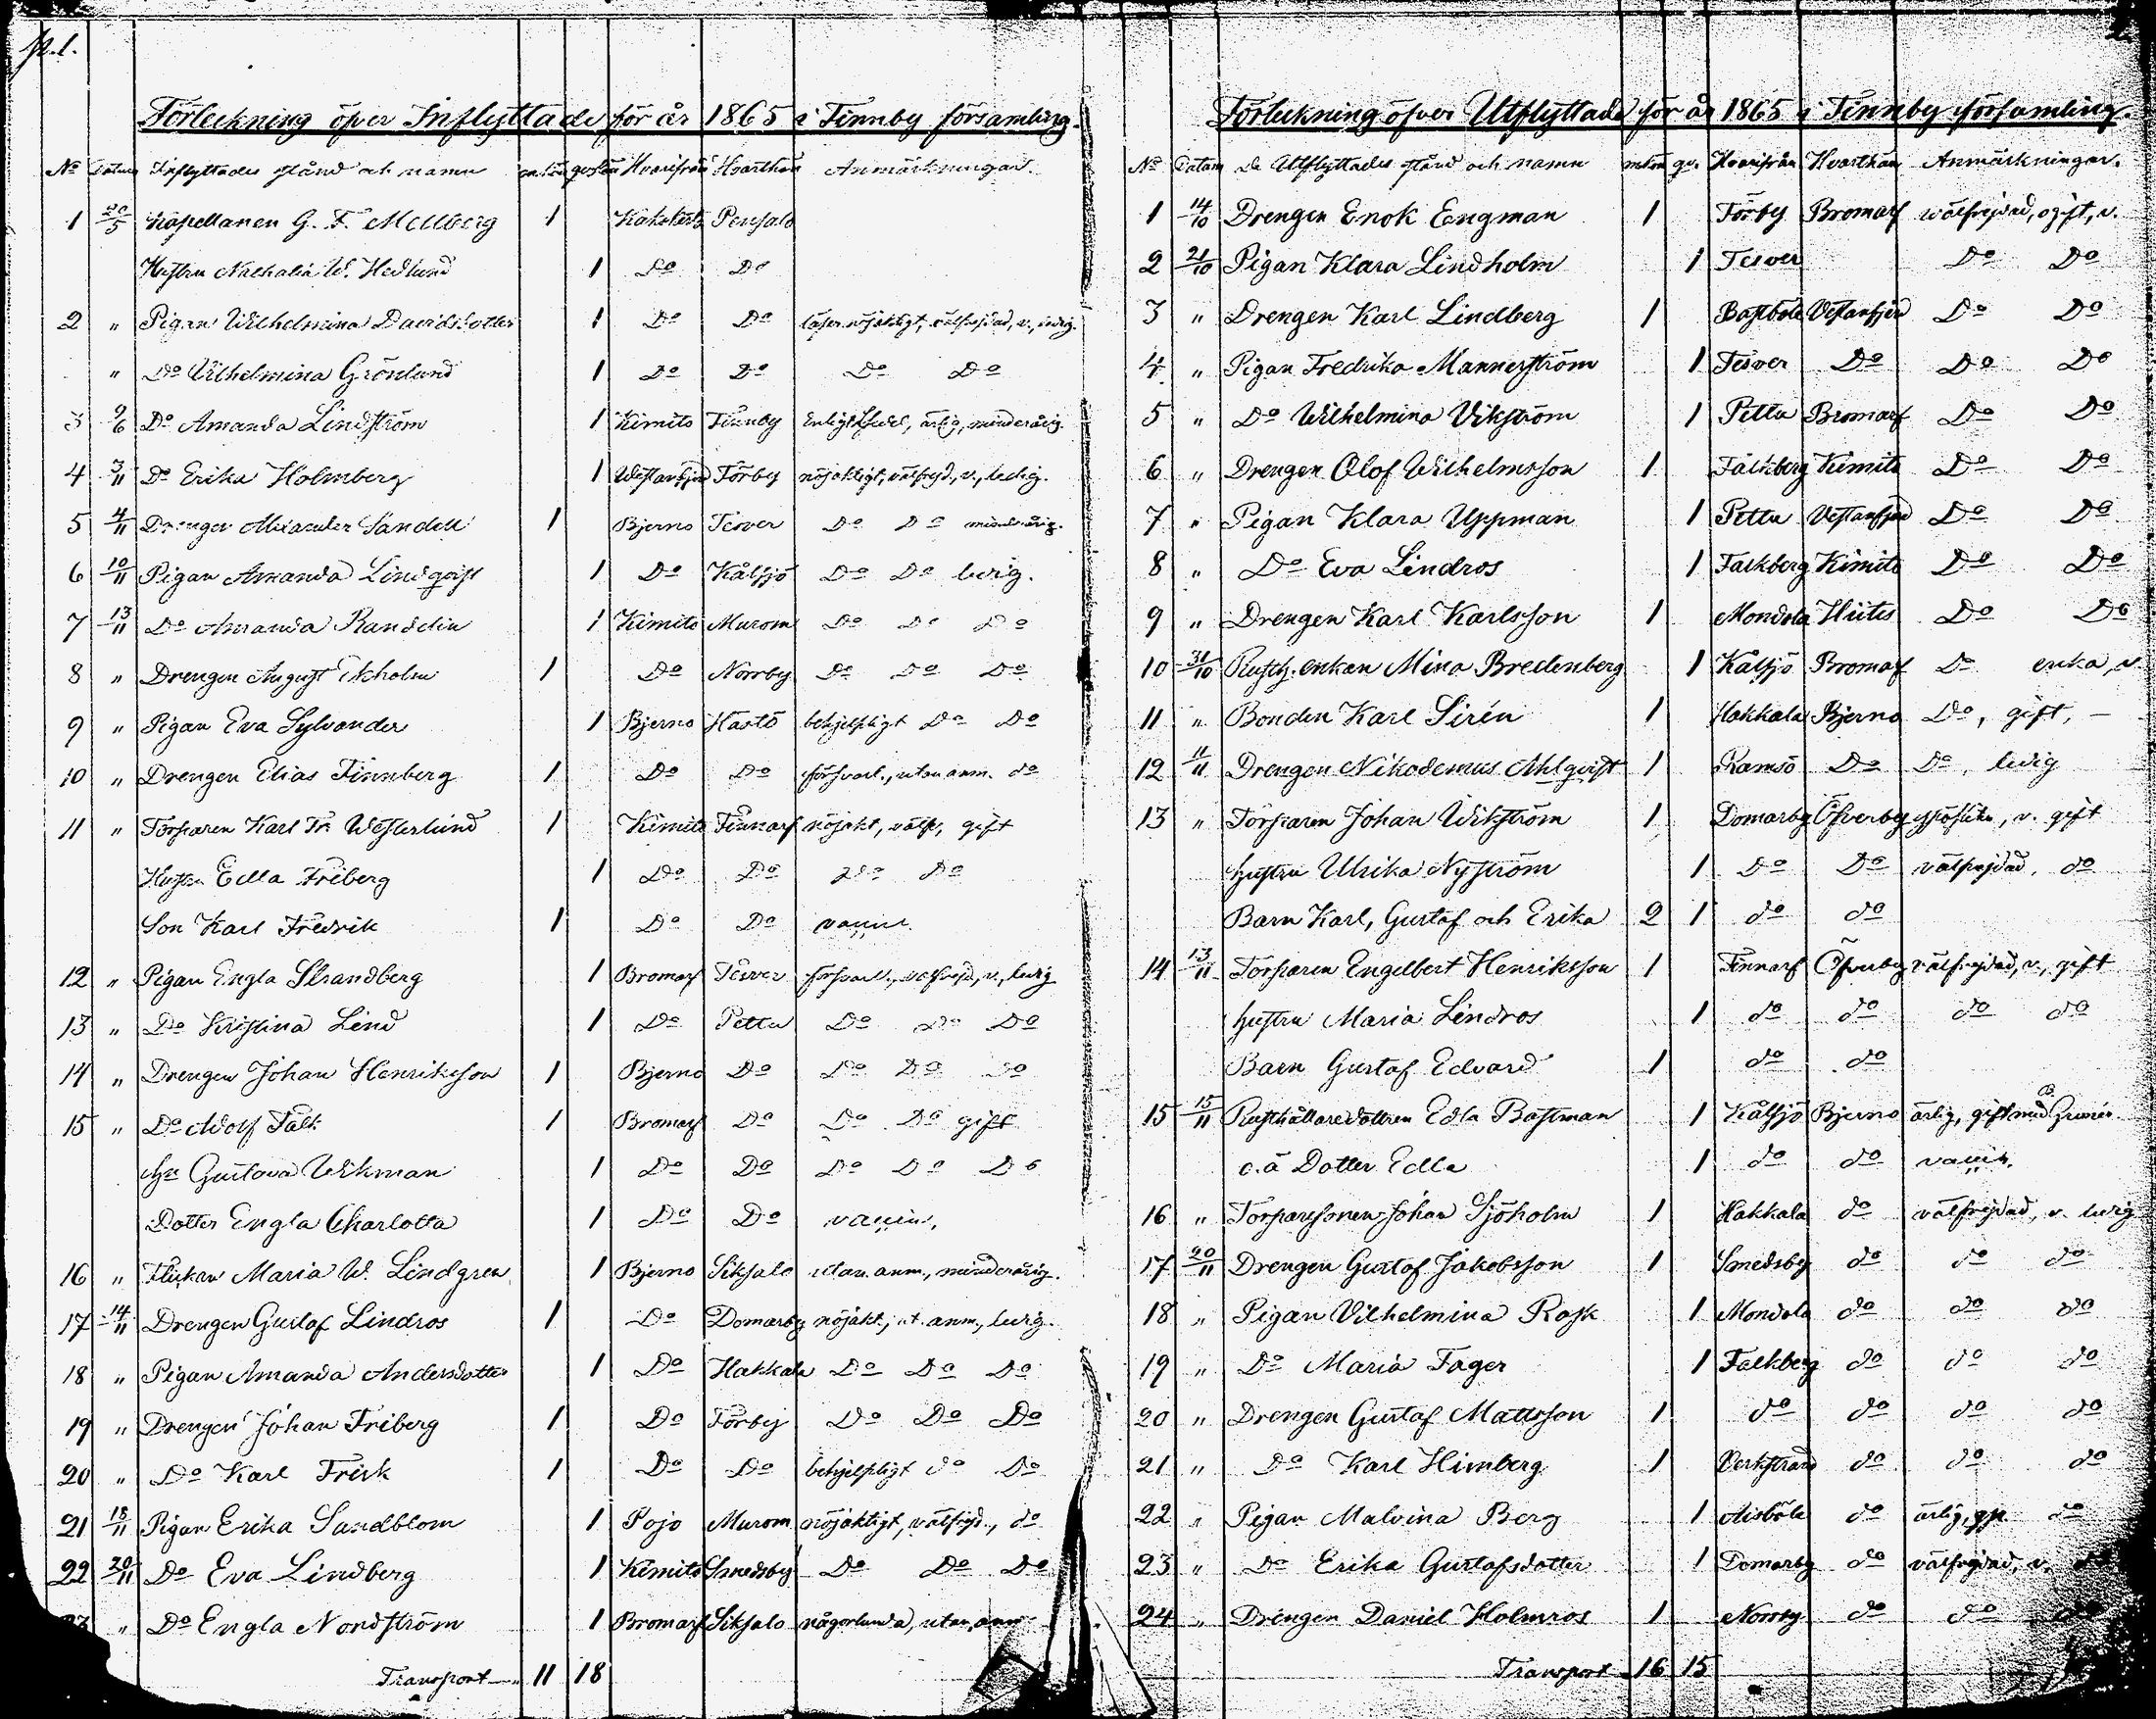 p.1.
Förteckning öfver Inflyttade för år 1865 i Finnby församling.
No Datum Inflyttades stånd och namn mankön qvkön Hvarifrån Hvarthän Anmärkningar.
1 20/5 Kapellanen G. F. Mellberg 1 Kakskerta Pensalo
Hustru Nathalia W. Hedlund 1 Do Do
2 " Pigan Wilhelmina Davidsdotter 1 Do Do läser nöjaktigt, välfrejdad, v., ledig.
" Do Vilhelmina Grönlund 1 Do Do Do Do
3 9/6 Do Amanda Lindström 1 Kimito Finnby Enligt Sedel, ärlig, minderårig.
4 3/11 Do Erika Holmberg 1 Westanfjerd Förby nöjaktigt, välfrejd., v., ledig.
5 4/11 Drengen Alexander Sandell 1 Bjerno Tesver Do Do minderårig.
6 10/11 Pigan Amanda Lindqvist 1 Do Kålsjö Do Do ledig.
7 13/11 Do Amanda Randelin 1 Kimito Murom Do Do Do
8 " Drengen August Ekholm 1 Do Norrby Do Do Do
9 " Pigan Eva Sylvander 1 Bjerno Hästö behjelpligt Do Do
10 " Drengen Elias Finnberg 1 Do Do försvarl., utan anm. do
11 " Torparen Karl Fr. Westerlund 1 Kimito Finnarf nöjakt, välfr, gift
Hustru Edla Friberg 1 Do Do Do Do
Son Karl Fredrik 1 Do Do vaccin.
12 " Pigan Engla Strandberg 1 Bromarf Tesver försvarl., välfrejd, v., ledig
13 " Do Kristina Lind 1 Do Pettu Do Do Do
14 " Drengen Johan Henriksson 1 Bjerno Do Do Do Do
15 " Do Adolf Falk 1 Bromarf Do Do Do gift
hu Gustava Wikman 1 Do Do Do Do Do
Dotter Engla Charlotta 1 Do Do vaccin,
16 " Flickan Maria W. Lindgren 1 Bjerno Siksalo utan anm., minderårig.
17 14/11 Drengen Gustaf Lindros 1 Do Domarby nöjakt, ut. anm., ledig.
18 " Pigan Amanda Andersdotter 1 Do Hakkala Do Do Do
19 " Drengen Johan Friberg 1 Do Förby Do Do Do
20 " Do Karl Frisk 1 Do Do behjelpligt do Do
21 18/11 Pigan Erika Sandblom 1 Pojo Murom nöjaktigt, välfrejd., do
22 20/11 Do Eva Lindberg 1 Kimito Smedsby Do Do Do
23 " Do Engla Nordström 1 Bromarf Siksalo någorlunda, utan anm
Transport 11 18
Förteckning öfver Utflyttade för år 1865 i Finnby församling.
No Datum De Utflyttades stånd och namn mankön qv. Hvarifrån Hvarthän Anmärkningar.
1 14/10 Drengen Enok Engman 1 Förby Bromarf wälfrejdad, ogift, v.
2 21/10 Pigan Klara Lindholm 1 Tesver Do Do
3 " Drengen Karl Lindberg 1 Bastböle Vestanfjerd Do Do
4 " Pigan Fredrika Mannerström 1 Tesver Do Do Do
5 " Do Wilhelmina Vikström 1 Pettu Bromarf Do Do
6 " Drengen Olof Wilhelmsson 1 Falkberg Kimito Do Do
7 " Pigan Klara Uppman 1 Pettu Vestanfjerd Do Do
8 " Do Eva Lindros 1 Falkberg Kimito Do Do
9 " Drengen Karl Karlsson 1 Mondola Hitis Do Do
10 31/10 Rusth. enkan Mina Bredenberg 1 Kålsjö Bromarf Do enka, v.
11 " Bonden Karl Sirén 1 Hakkala Bjerno Do, gift, —
12 11/11 Drengen Nikodemus Ahlqvist 1 Ramsö Do Do, ledig
13 " Torparen Johan Wikström 1 Domarby Öfverby v. gift
hustru Ulrika Nyström 1 Do Do välfrejdad, do
Barn Karl, Gustaf och Erika 2 1 do do
14 13/11 Torparen Engelbert Henriksson 1 Finnarf Öfverby välfrejdad, v., gift
hustru Maria Lindros 1 do do do do
Barn Gustaf Edvard 1 do do
15 15/11 Rusthållaredottren Edla Bastman 1 Kålsjö Bjerno ärlig, gift med B.
o.ä Dotter Edla 1 do do vaccin.
16 " Torparesonen Johan Sjöholm 1 Hakkala do välfrejdad, v. ledig
17 20/11 Drengen Gustaf Jakobsson 1 Smedsby do do do
18 " Pigan Vilhelmina Rosk 1 Mondola do do do
19 " Do Maria Fager 1 Falkberg do do do
20 " Drengen Gustaf Mattsson 1 do do do do
21 " Do Karl Himberg 1 Verkstrand do do do
22 " Pigan Malvina Berg 1 Aisböle do ärlig, do
23 " Do Erika Gustafsdotter 1 Domarby do välfrejdad, v. do
24 " Drengen Daniel Holmros 1 Norrby do do do
Transport 16 15